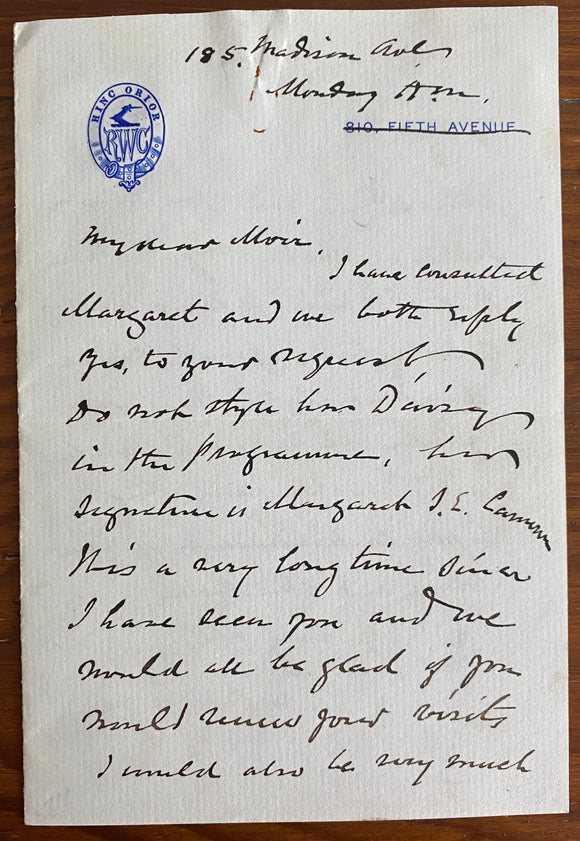 185. Madison Ave
Monday A.m.
810, FIFTH AVENUE
HINC ORIOR
RWC
My dear Moir,
I have consulted
Margaret and we both reply
Yes, to your request,
Do not style her Daisy
in the Programme, her
signature is Margaret S.E. Cameron
It is a very long time since
I have seen you and we
would all be glad if you
would renew your visits
I would also be very much